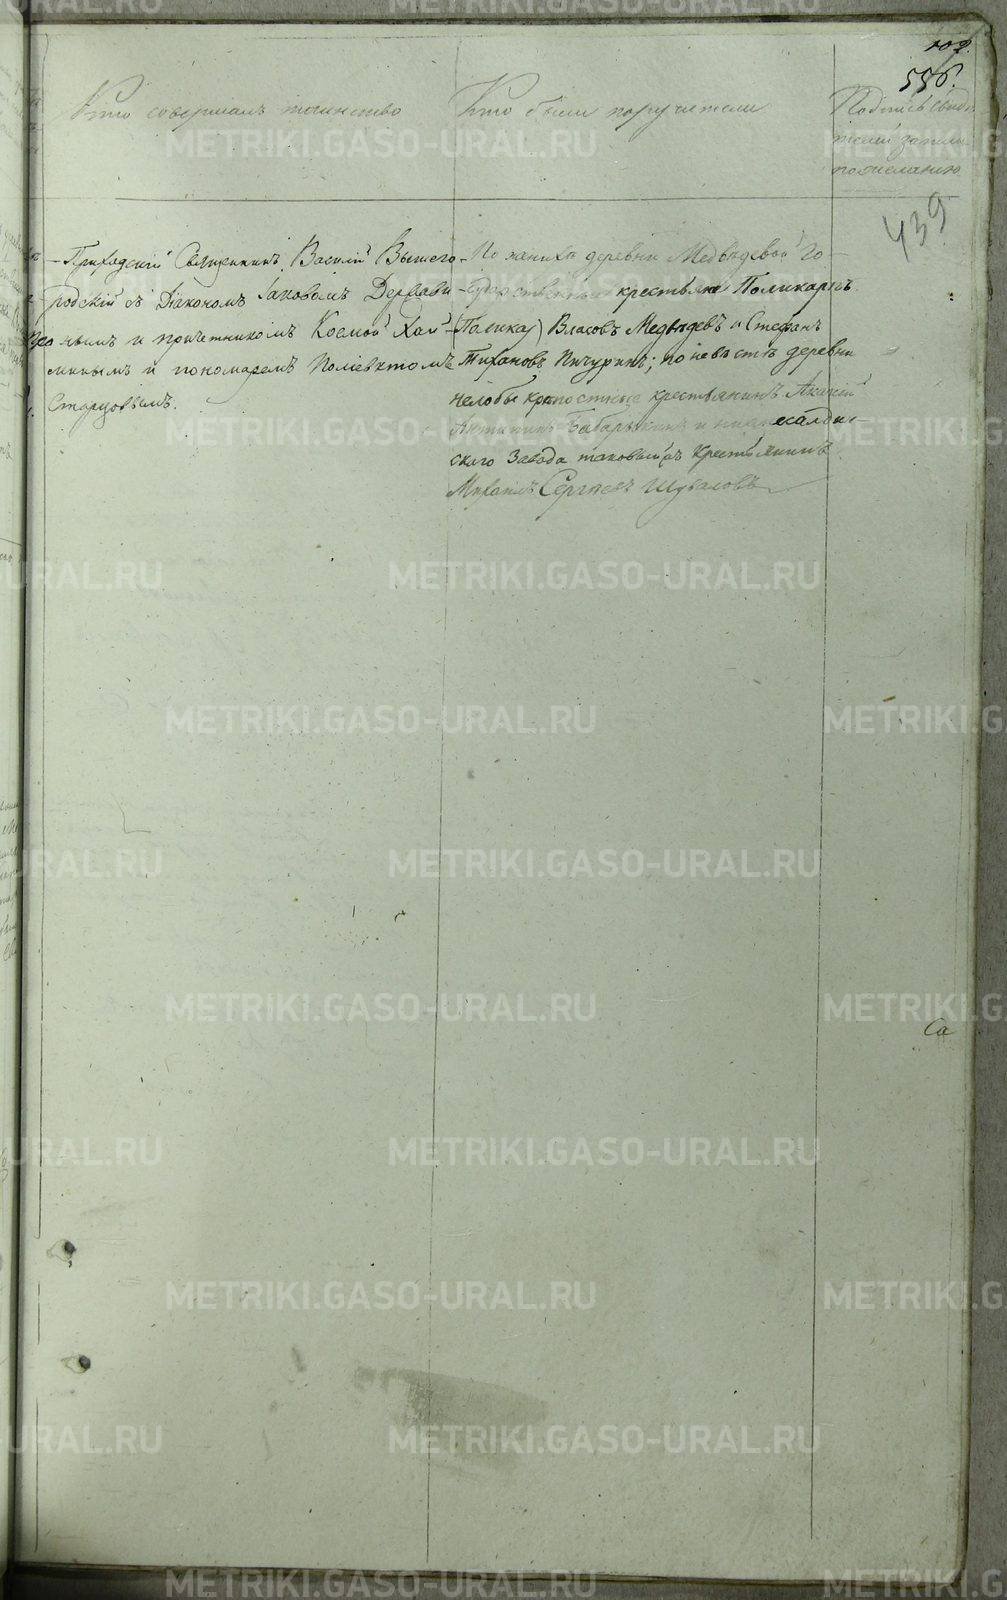 102.
556.
Кто совершалъ таинство
Кто были поручители
Подпись свиде-
телей записи
по желанию
439
Приходскiй Священникъ Василiй Вышего-
родскiй съ Дiакономъ Iаковомъ Держави-
нымъ и причетникомъ Космой Хал-
минымъ и пономаремъ Полiевктомъ
Старцовымъ.
По женихѣ деревни Медвѣдевой Го-
сударственные крестьяне Поликарпъ
(Поликар) Власовъ Медвѣдевъ и Стефанъ
Тихановъ Пичуринъ; по невѣстѣ деревни
Нелобы крѣпостные крестьянинъ Акакiй
Антипинъ Бабарыкинъ и нижнесалдин-
скаго Завода таковый же крестьянинъ
Михаилъ Сергѣевъ Шуваловъ
Са
METRIKI.GASO-URAL.RU